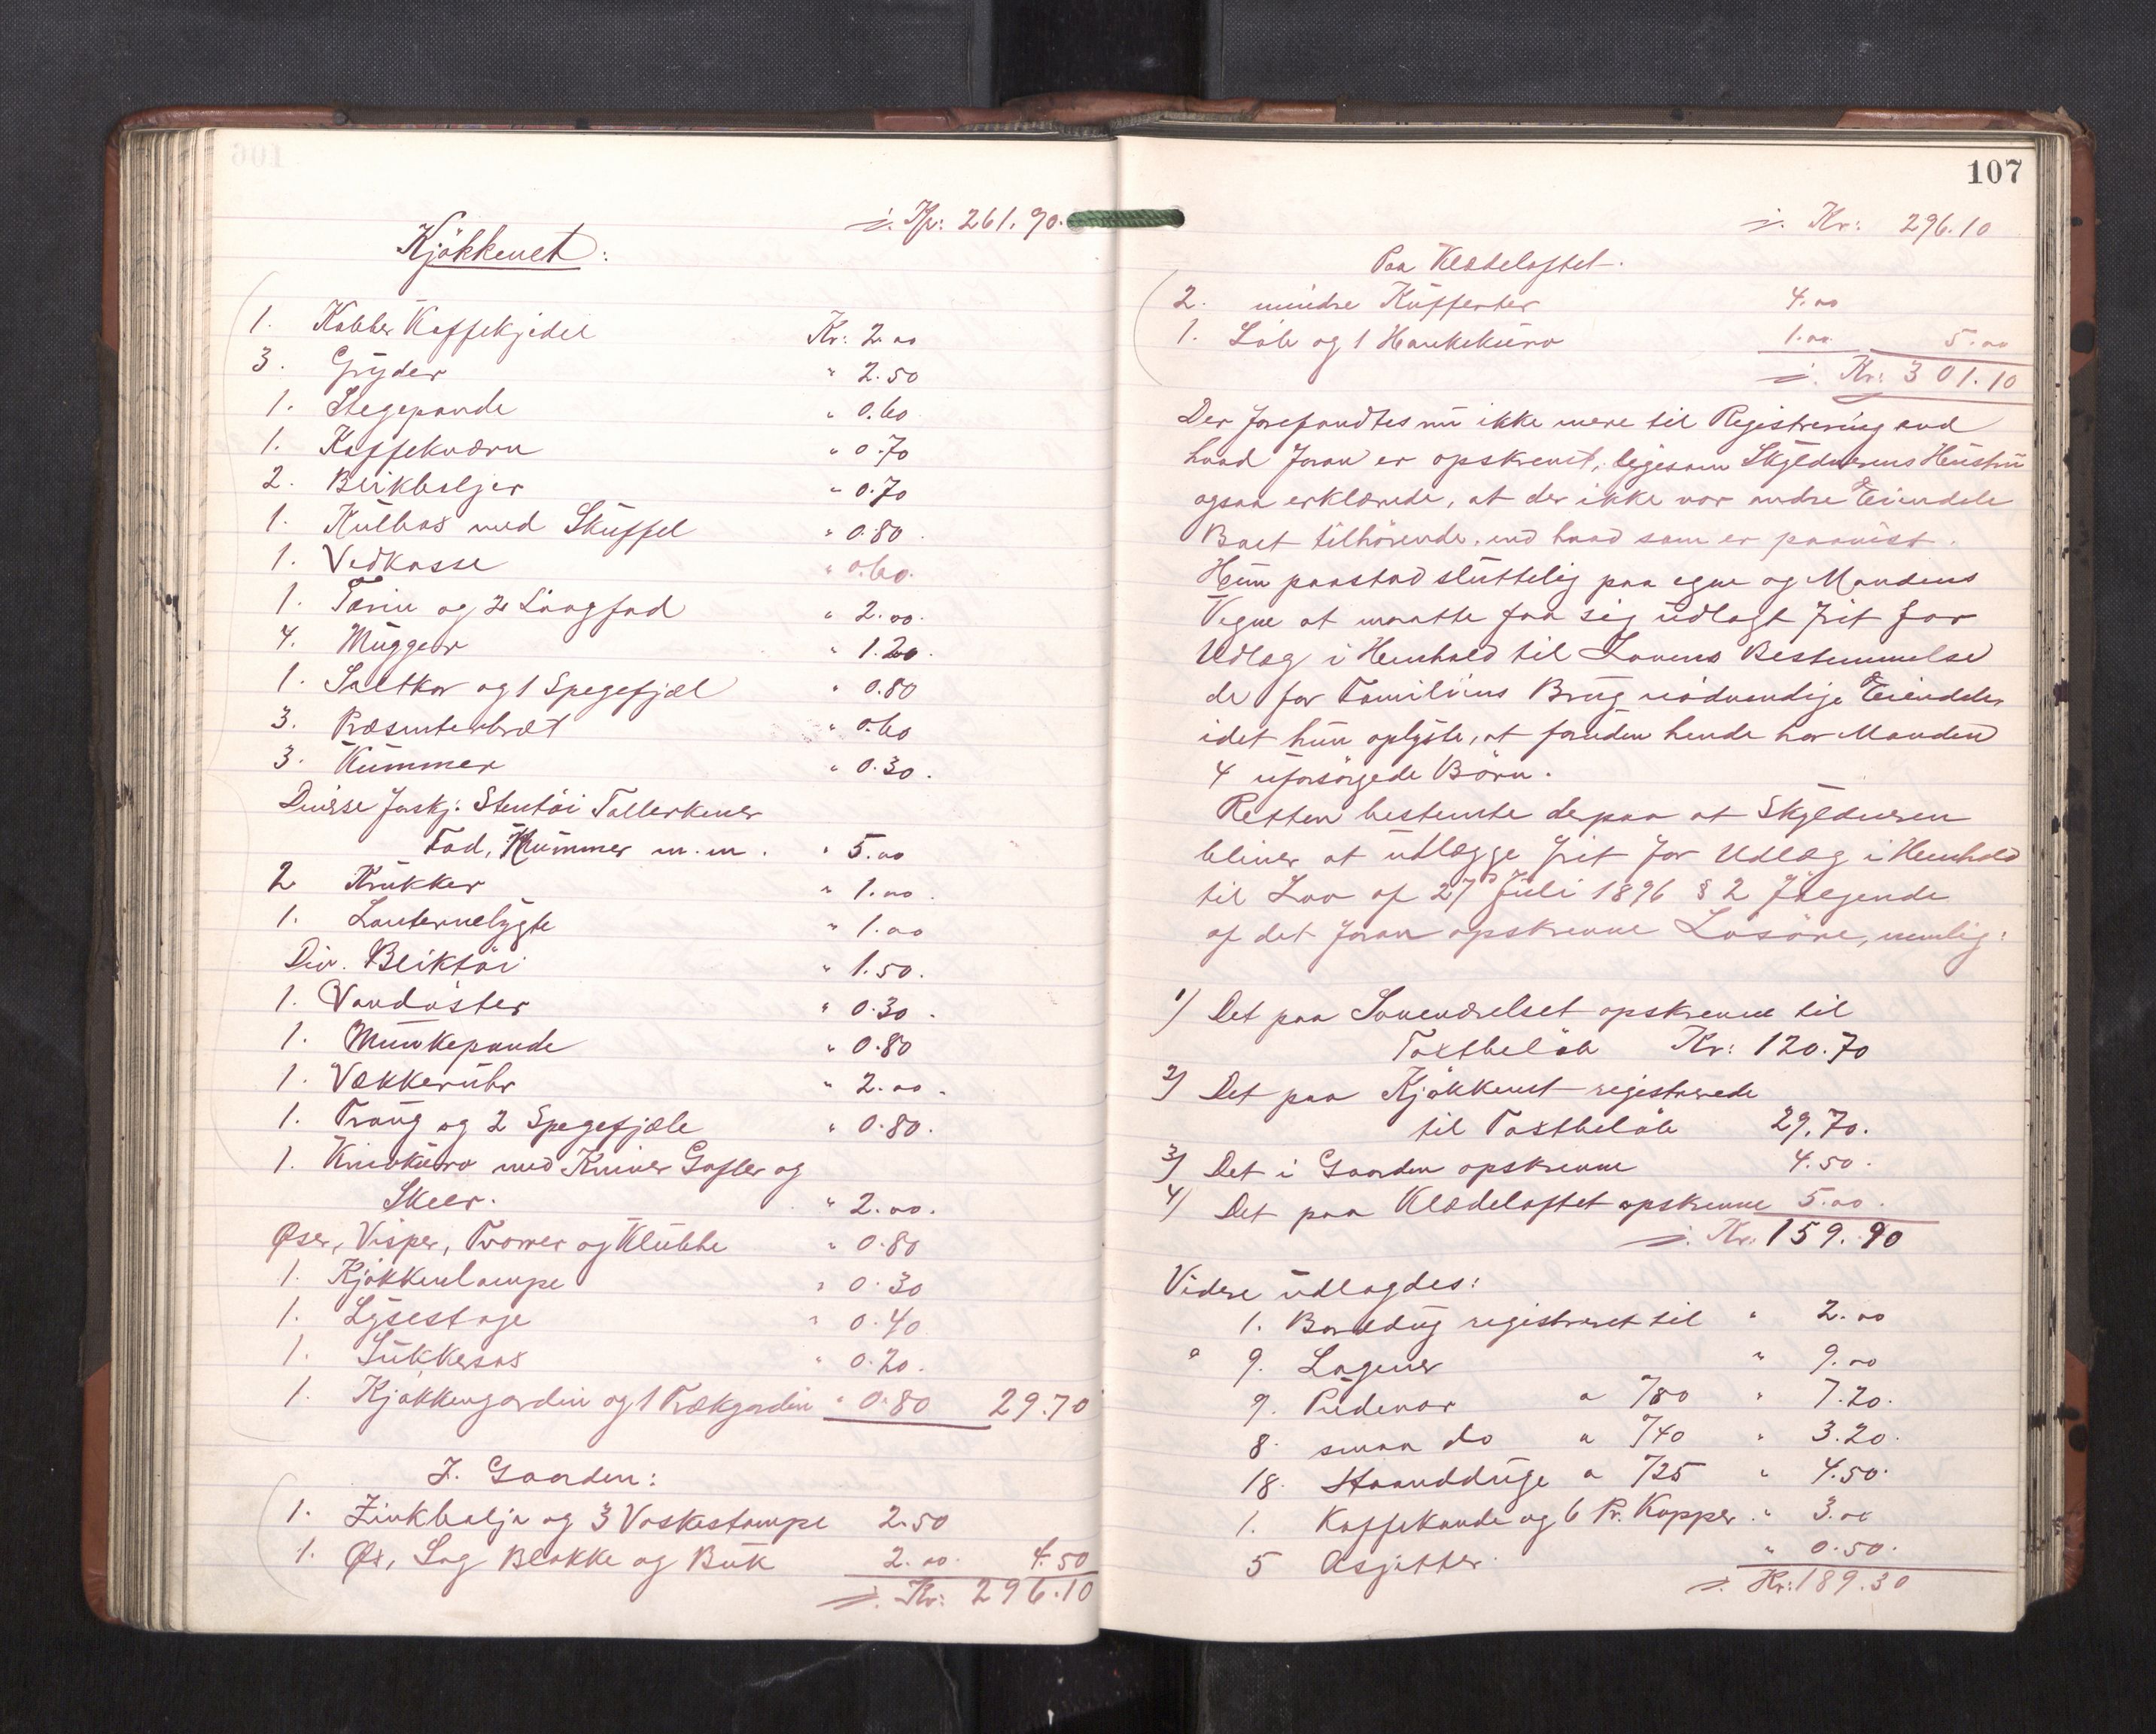 ⹀. Kr: 261.90.
Kjökkenet:
1. Kobber Kaffekjedel Kr: 2.00
3. Gryder " 2.50
1. Stegepande " 0.60
1. Kaffekværn " 0.70
2. Blikbaljer " 0.70
1. Kulbox med Skuffel " 0.80
1. Vedkasse " 0.60.
1. Terin og 2 Langfad " 2.00.
4. Mugger " 1.20.
1. Saltkar og 1 Spegefjæl " 0.80
3. Præsenterbræt " 0.60
3. Kummer " 0.30.
Diverse forskj: Stentöi Tallerkener
Fad, Kummer m.m. " 5.00
2 Krukker " 1.00.
1. Lanternelygte " 1.00
Div. Bliktöi " 1.50.
1. Vandöster " 0.30.
1. Munkepande " 0.80
1. Vækkeruhr " 2.00.
1. Traug og 2 Spegefjæle " 0.80.
1. Knivkurv med Kniver Gafler og
Skeer. " 2.00.
Øser, Visper, Tvorrer og Klubbe " 0.80
1. Kjökkenlampe " 0.30
1. Lysestage " 0.40
1. Sukkersax " 0.20.
1. Kjökkengardin og 1 Trækgardin " 0.80 29.70
I. Gaarden:
1. Zinkbalja og 3 Vaskestampe 2.50
1. Øx, Sag Blokke og Buk 2.00. 4.50
Kr: 296.10
107
Kr: 296.10
Paa Klædeloftet.
2. mindre Kufferter 4.00
1. Löb og 1 Hankekurv 1.00. 5.00
Kr: 301.10
Der forefandtes nu ikke mere til Registrering end
hvad foran er opskrevet, ligesom Skyldnerens Hustru
ogsaa erklærede, at der ikke var andre Eiendele
Boet tilhörende, end hvad som er paavist.
Hun paastod sluttelig paa egne og Mandens
Vegne at maatte faa sig udlagt frit for
Udlæg i Henhold til Lovens Bestemmelse
de for Familiens Brug nödvendige Eiendele,
idet hun oplyste, at foruden hende har Manden
4 uforsörgede Börn.
Retten bestemte derpaa at Skyldneren
bliver at udlægge frit for Udlæg i Henhold
til Lov af 27de Juli 1896 § 2 fölgende
af det foran opskrevne Lösöre, nemlig:
1) Det paa Soveværelset opskrevne til
Taxtbelöb Kr: 120.70
2) Det paa Kjökkenet registrerede
til Taxtbelöb 29.70.
3) Det i Gaarden opskrevne 4.50.
4) Det paa Klædeloftet opskrevne 5.00.
Kr: 159.90
Videre udlagdes:
1. Borddug registreret til " 2.00
9. Lagener " 9.00
9. Pudevar a 0/80 " 7.20.
8. smaa do a 0/40 " 3.20.
18. Haandduge a 0/25 " 4.50.
1. Kaffekande og 6 Pr. Kopper. " 3.00
5 Asjetter. " 0.50.
Kr: 189.30